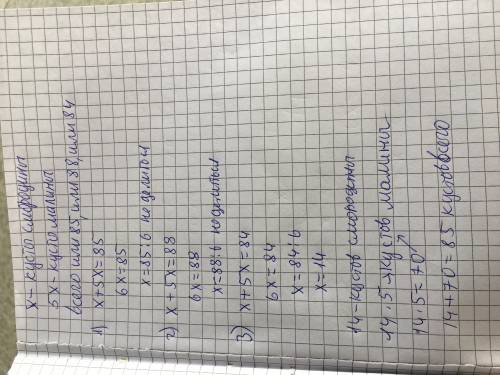 x - кустов смородины
5x - кустов малины
всего или 85, или 88, или 84
1) x+5x=85
6x=85
x=85:6 не делится
2) x+5x=88
6x=88
x=88:6 не делится
3) x+5x=84
6x=84
x=84:6
x=14
14 - кустов смородины
14·5 - кустов малины
14·5=70
14+70=85 кустов всего